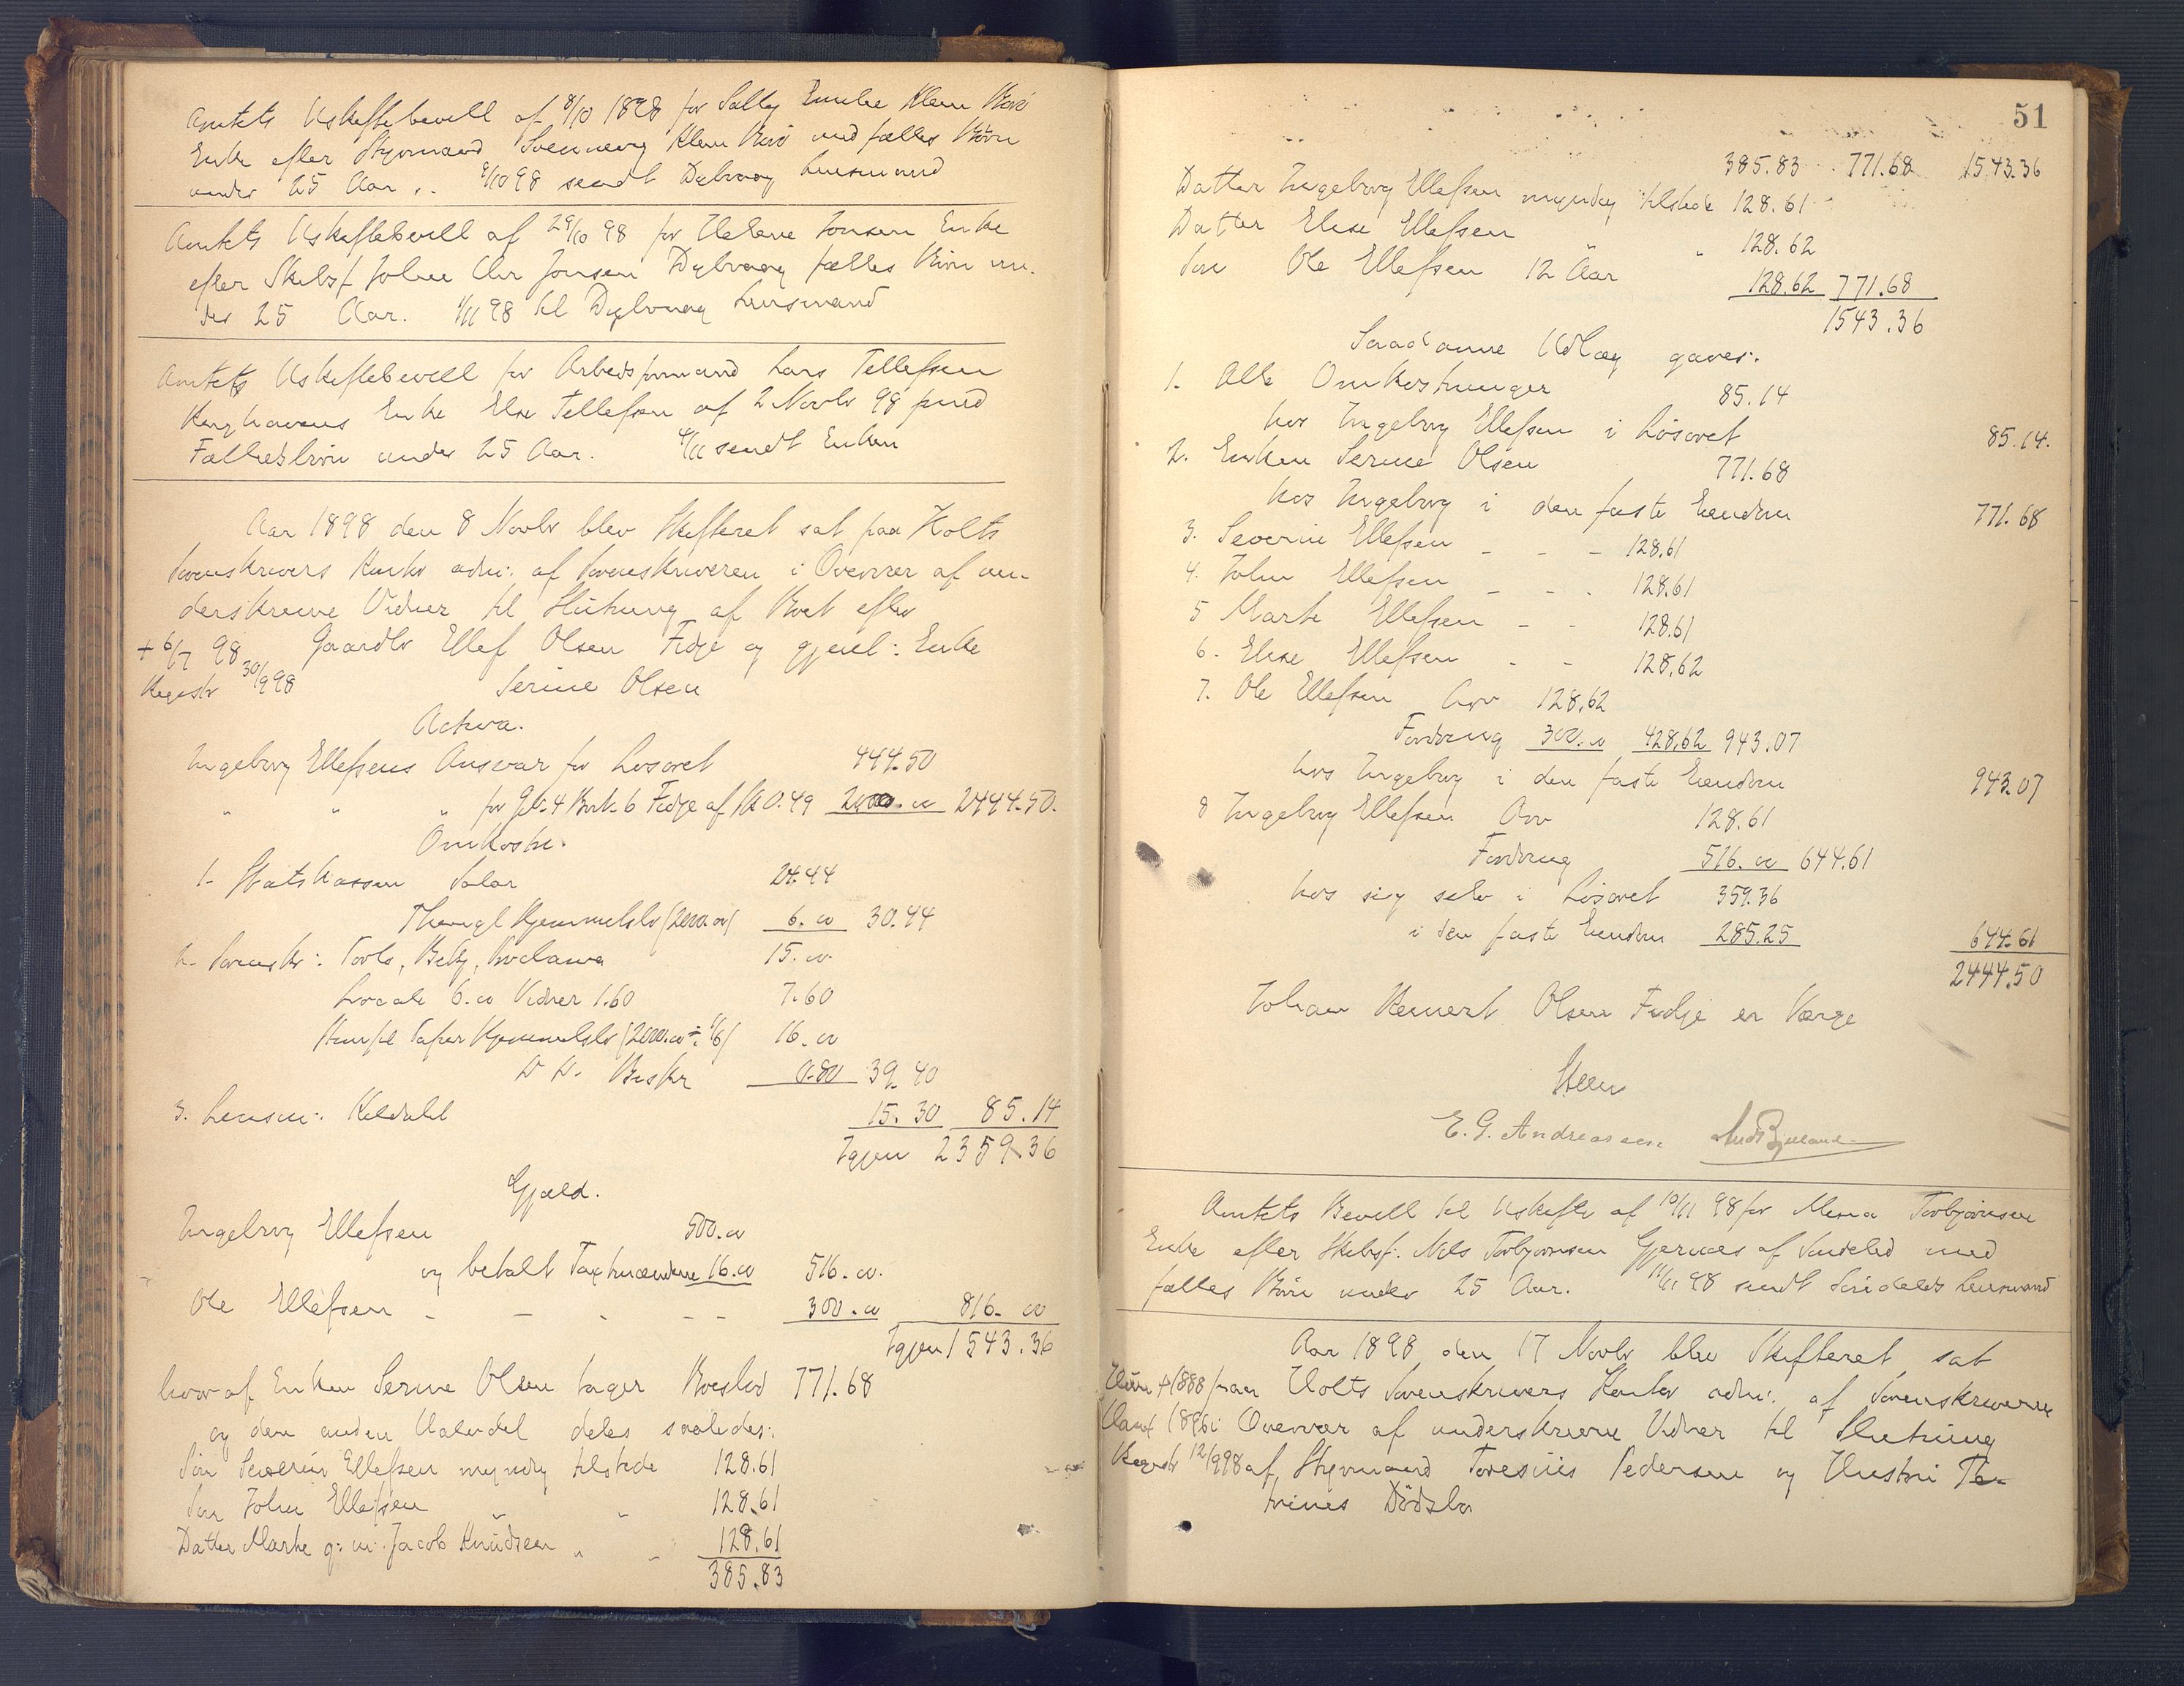 Amtets Uskiftebevill af 8/10 1898 for Sally Emilie Klem Boe
Enke efter Styrmand Svennevig Klem Boe med fælles Børn
under 25 Aar. 8/10 98 sendt Dybvaag Lensmand
Amtets Uskiftebevill af 29/10 98 for Helene Jonsen Enke
efter Skibsf Johne Chr Jonsen Dybvaag fælles Børn un-
der 25 Aar. 1/11 98 til Dybvaag Lensmand
Amtets Uskiftebevill for Arbeidsformand Lars Tellefsen
Enke Else Tellefsen af 2 Novbr 98 med
Fællesbørn under 25 Aar. 4/11 sendt Enken
Aar 1898 den 8 Novbr blev Skifteret sat paa Holts
Sorenskrivers Kontor adm: af Sorenskriveren i Overvær af un-
derskrevne Vidner til Slutning af Boet efter
+ 6/7 98 Gaardbr Ellef Olsen Fidje og gjenl: Enke
Registr 30/9 98 Serine Olsen
Activa.
Ingeborg Ellefsens Ansvar for Løsøret 444.50
" " " for Gno 4 Brk. 6 Fidje af Sk 0.49 2000.00 2444.50.
Omkostn.
1. Statskassen Salar 24.44
Thingl Hjemmelsbr (2000.00) 6.00 30.44
2. Sorenskr: Forb, Bektj, Proclama 15.00
Locale 6.00 Vidner 1.60 7.60
Stempl Papir Hjemmelsbr (2000.00 ÷ 1/6) 16.00
D D. Beskr 0.80 39.40
3. Lensm: Keldahl 15.30 85.14
Igjen 2359.36
Gjæld.
Ingeborg Ellefsen 500.00
og betalt Taxtmændene 16.00 516.00.
Ole Ellefsen - - - - - 300.00 816.00
Igjen 1543.36
hvoraf Enken Serine Olsen tager Boeslod 771.68
og den anden Halvdel deles saaledes:
Søn Severin Ellefsen myndig tilstede 128.61
Søn John Ellefsen " " 128.61
Datter Marte g: m: Jacob Knudsen " " 128.61
385.83
51
385.83 771.68 1543.36
Datter Ingeborg Ellefsen myndig tilstede 128.61
Datter Elise Ellefsen " " 128.62
Søn Ole Ellefsen 12 Aar 128.62 771.68
1543.36
Saadanne Udlæg gaves:
1. Alle Omkostninger 85.14
hos Ingeborg Ellefsen i Løsøret 85.14.
2. Enken Serine Olsen 771.68
hos Ingeborg i den faste Eiendom 771.68
3. Severin Ellefsen - - - 128.61
4. John Ellefsen - - - 128.61
5 Marte Ellefsen - - 128.61
6. Elise Ellefsen - - 128.62
7. Ole Ellefsen Arv 128.62
Fordring 300.00 428.62 943.07
hos Ingeborg i den faste Eiendom 943.07
8 Ingeborg Ellefsen Arv 128.61
Fordring 516.00 644.61
hos sig selv i Løsøret 359.36
i den faste Eiendom 285.25 644.61
2444.50
Johan Reinert Olsen Fidje er Værge
E. G. Andreassen
Amtets Bevill til Uskifte af 10/11 98 for Mina Torbjørnsen
Enke efter Skibsf: Nils Torbjørnsen Gjernæs af Søndeled med
fælles Børn under 25 Aar. 11/11 98 sendt Søndeleds Lensmand
Aar 1898 den 17 Novbr blev Skifteret sat
Hun + 1888 paa Holts Sorenskrivers Kontor adm: af Sorenskriveren
Han + 1896 i Overvær af underskrevne Vidner til Slutning
Registr 12/9 98 af Styrmand Toresius Pedersen og Hustru Th-
rines Dødsbo